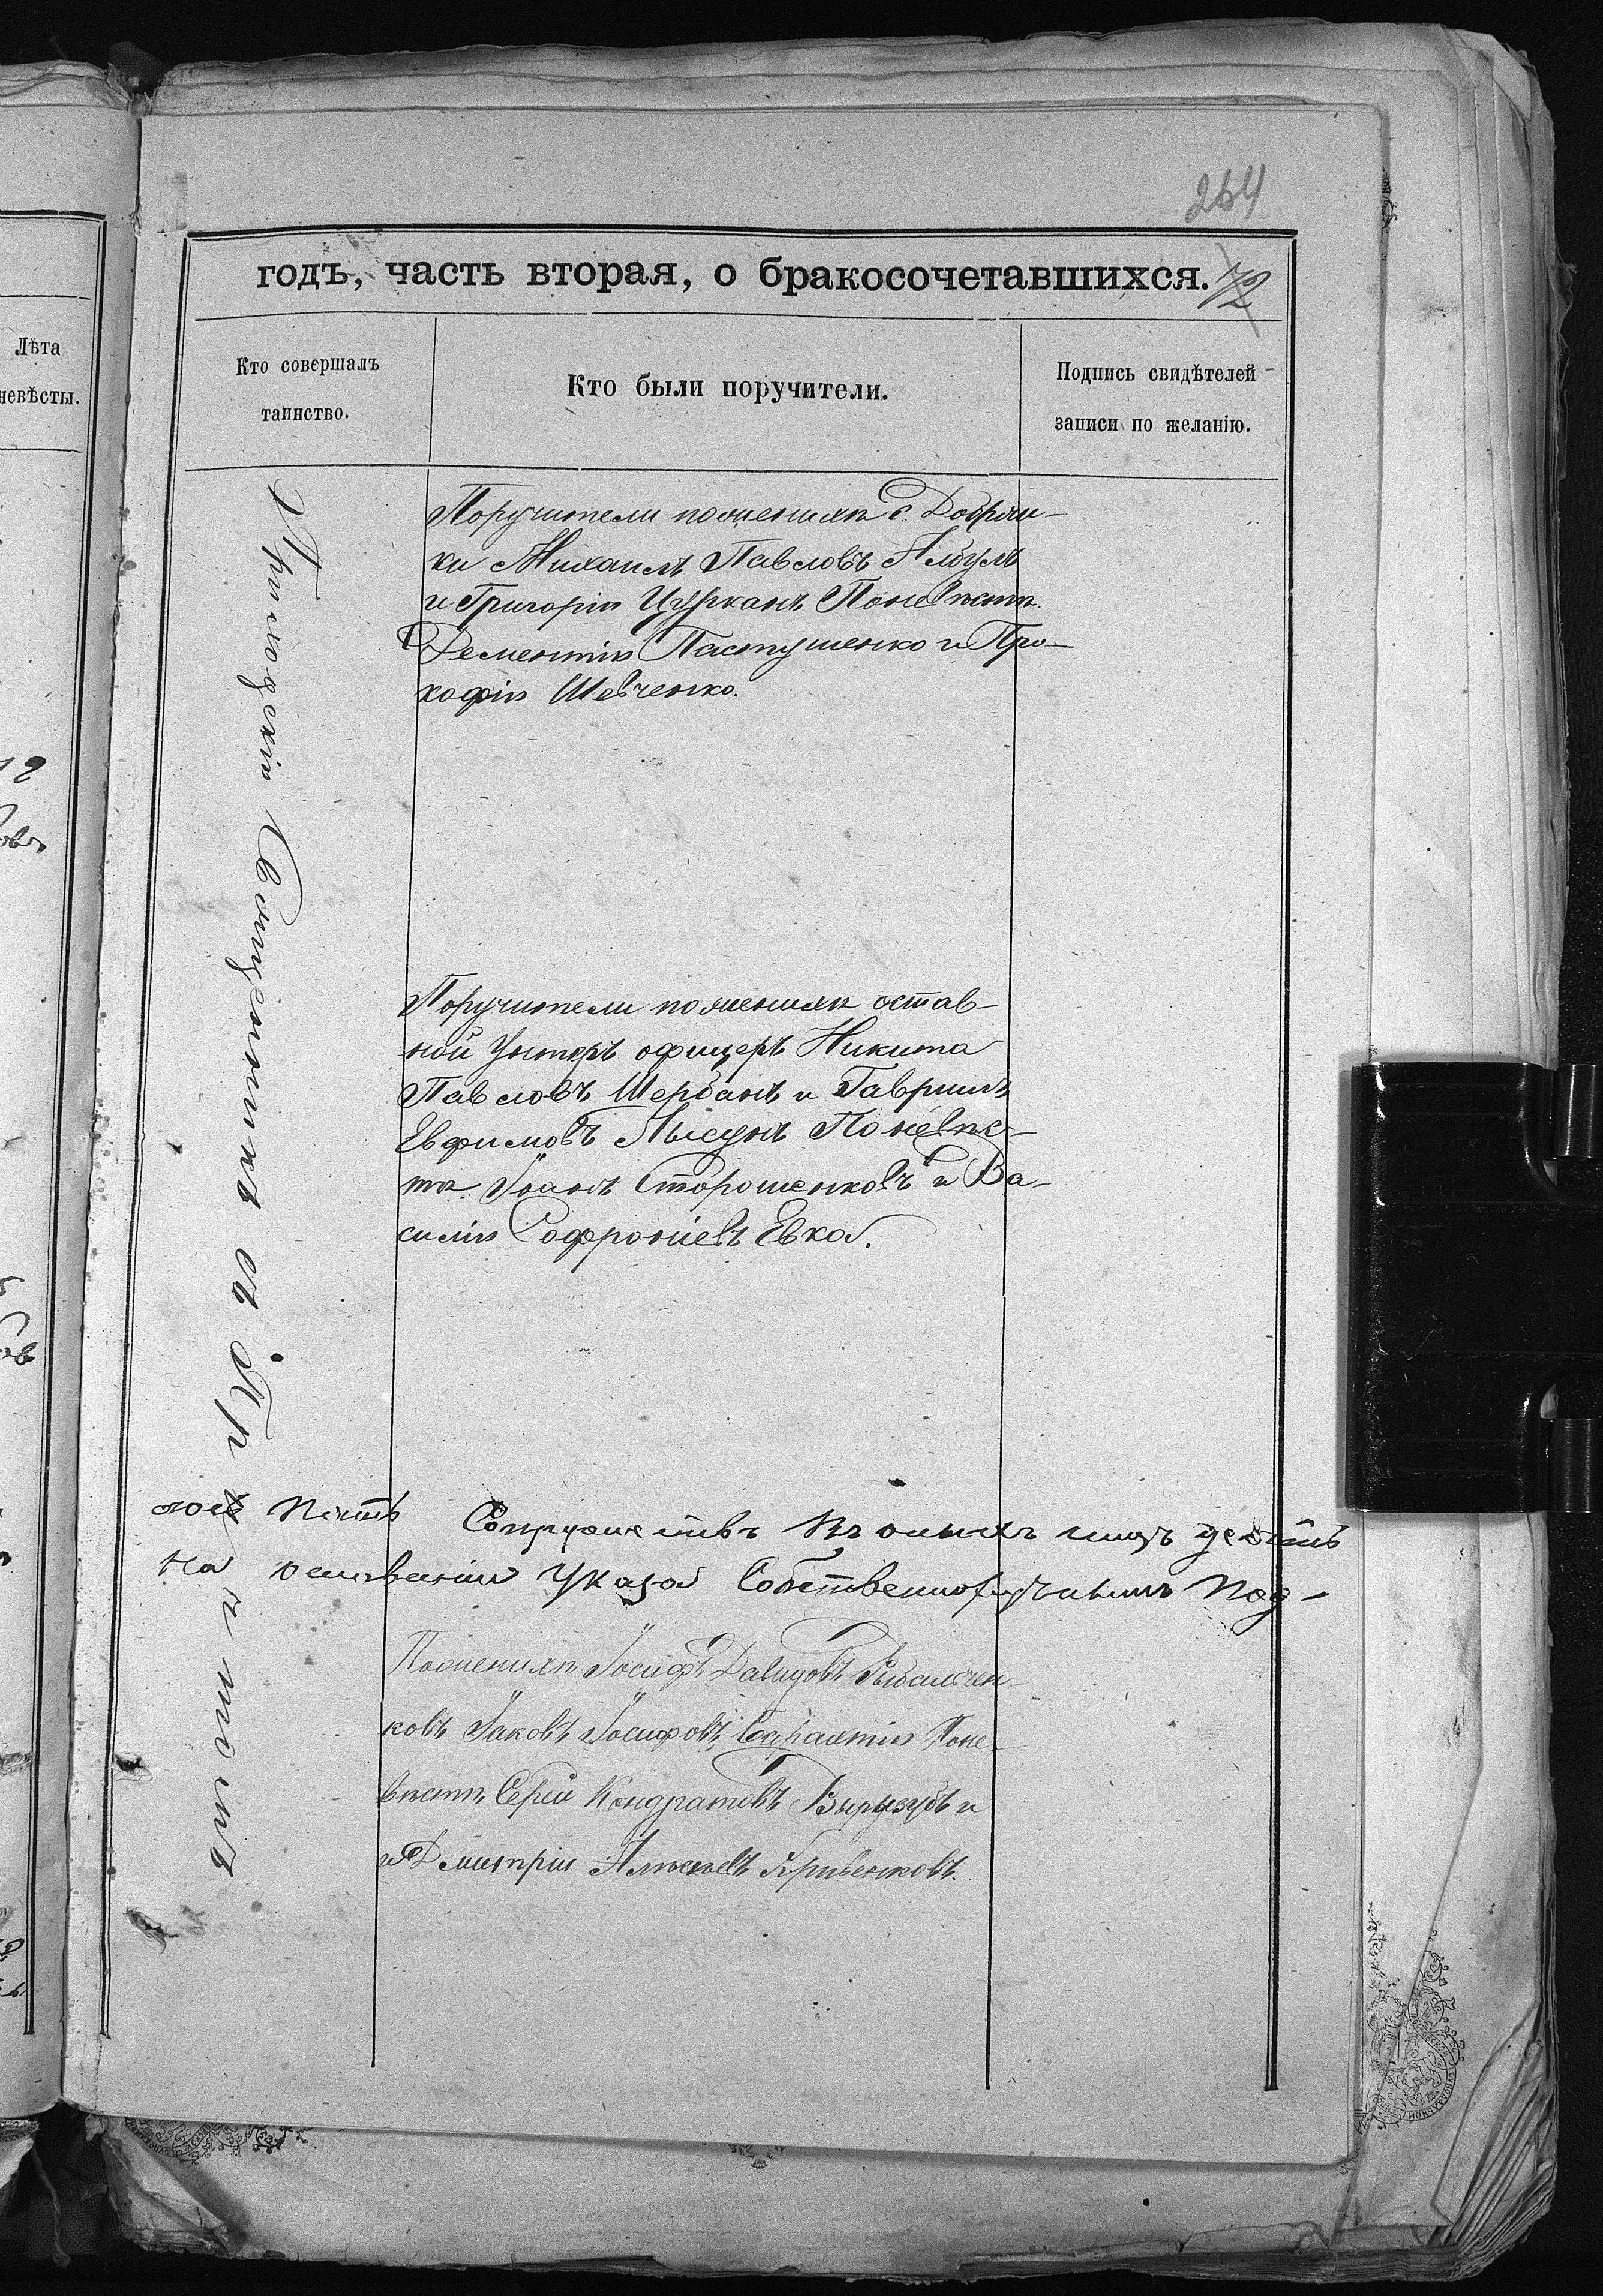 264
годъ, часть вторая, о бракосочетавшихся. 72
Лѣта
невѣсты.
Кто совершалъ
таинство.
Кто были поручители.
Подпись свидѣтелей
записи по желанію.
Поручители по женихѣ с. Добрян-
ки Михаилъ Павловъ Албулъ
и Григорій Цурканъ По невѣстѣ
Дементій Пастушенко и Про-
кофій Шевченко.
Поручители по женихѣ остав-
ной Унтеръ офицеръ Никита
Павловъ Щербанъ и Гавріилъ
Евфимовъ Лысунъ По невѣс-
тѣ Іоанъ Сторошенковъ и Ва-
силій Софроніевъ Евка.
Супружествъ въ оныхъ
На основаніи Указа Собственноручнымъ Под-
По женихѣ Іосифъ Давидовъ Рыбальчен-
ковъ Іаковъ Іосифовъ По не-
вѣстѣ Сергѣй Кондратовъ Вырузубъ и
и Дмитрій Алексѣевъ Кривенковъ.
Приходскій Священникъ